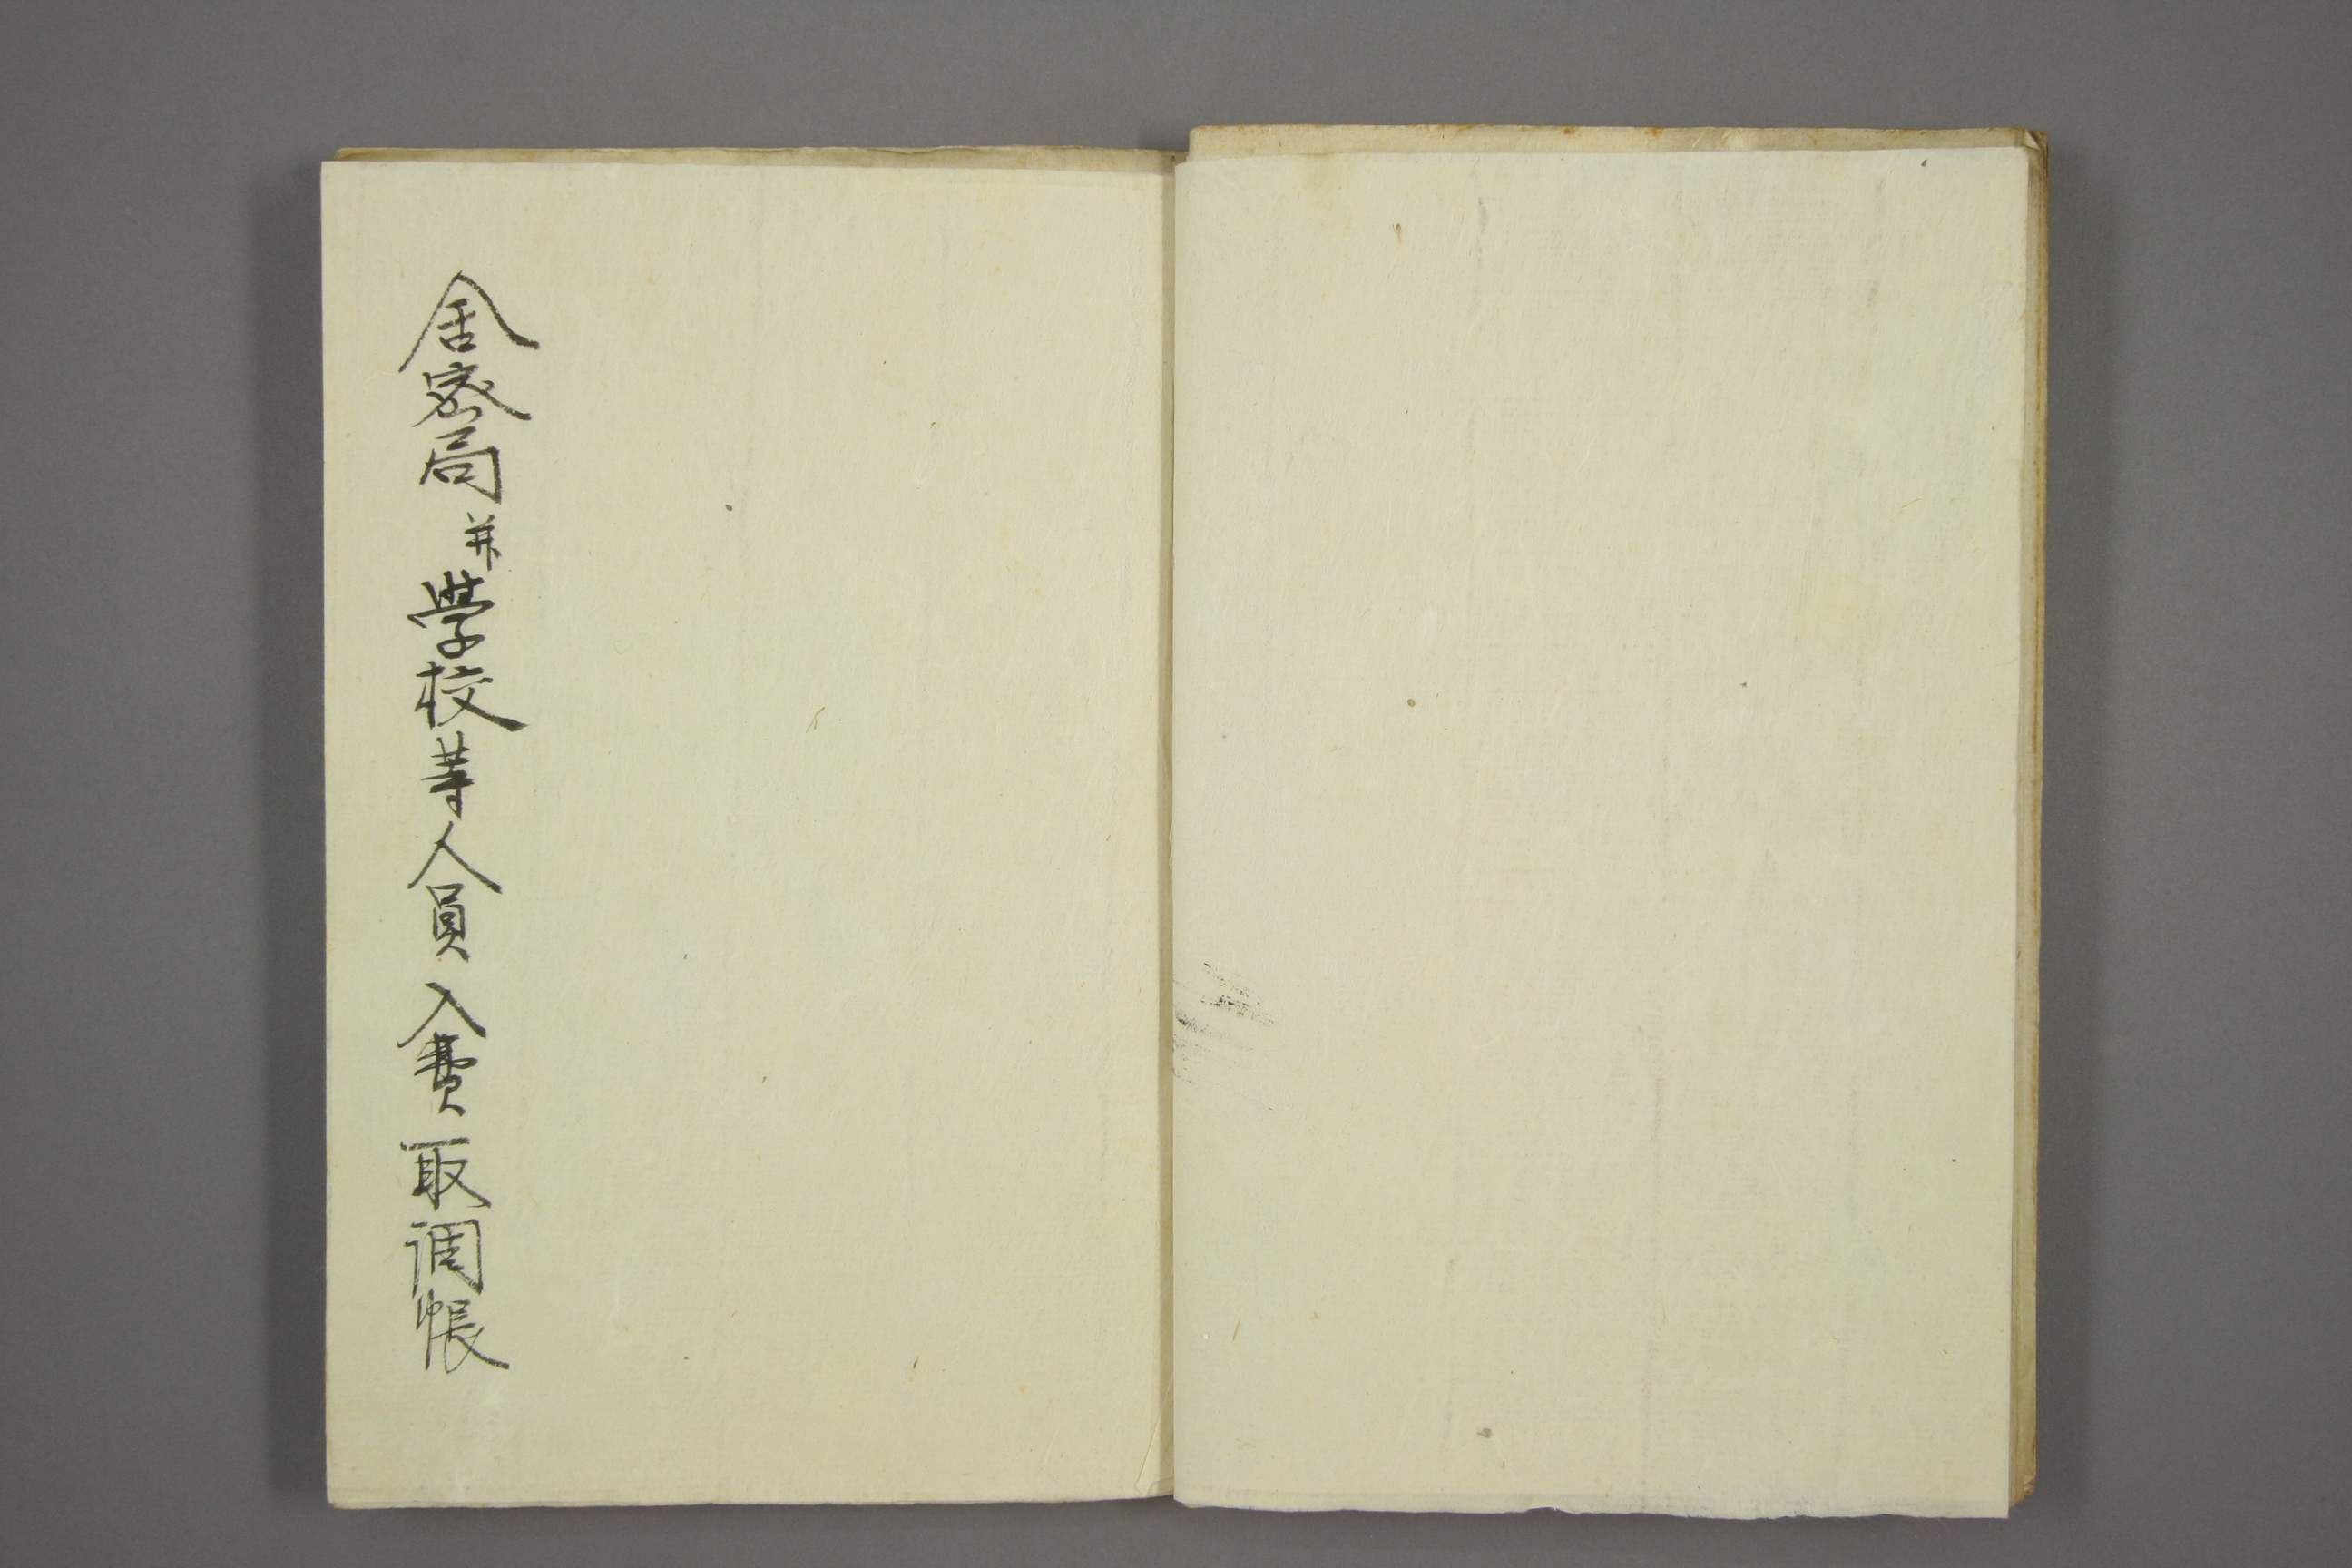 舎密局并學校等人員入費取調帳